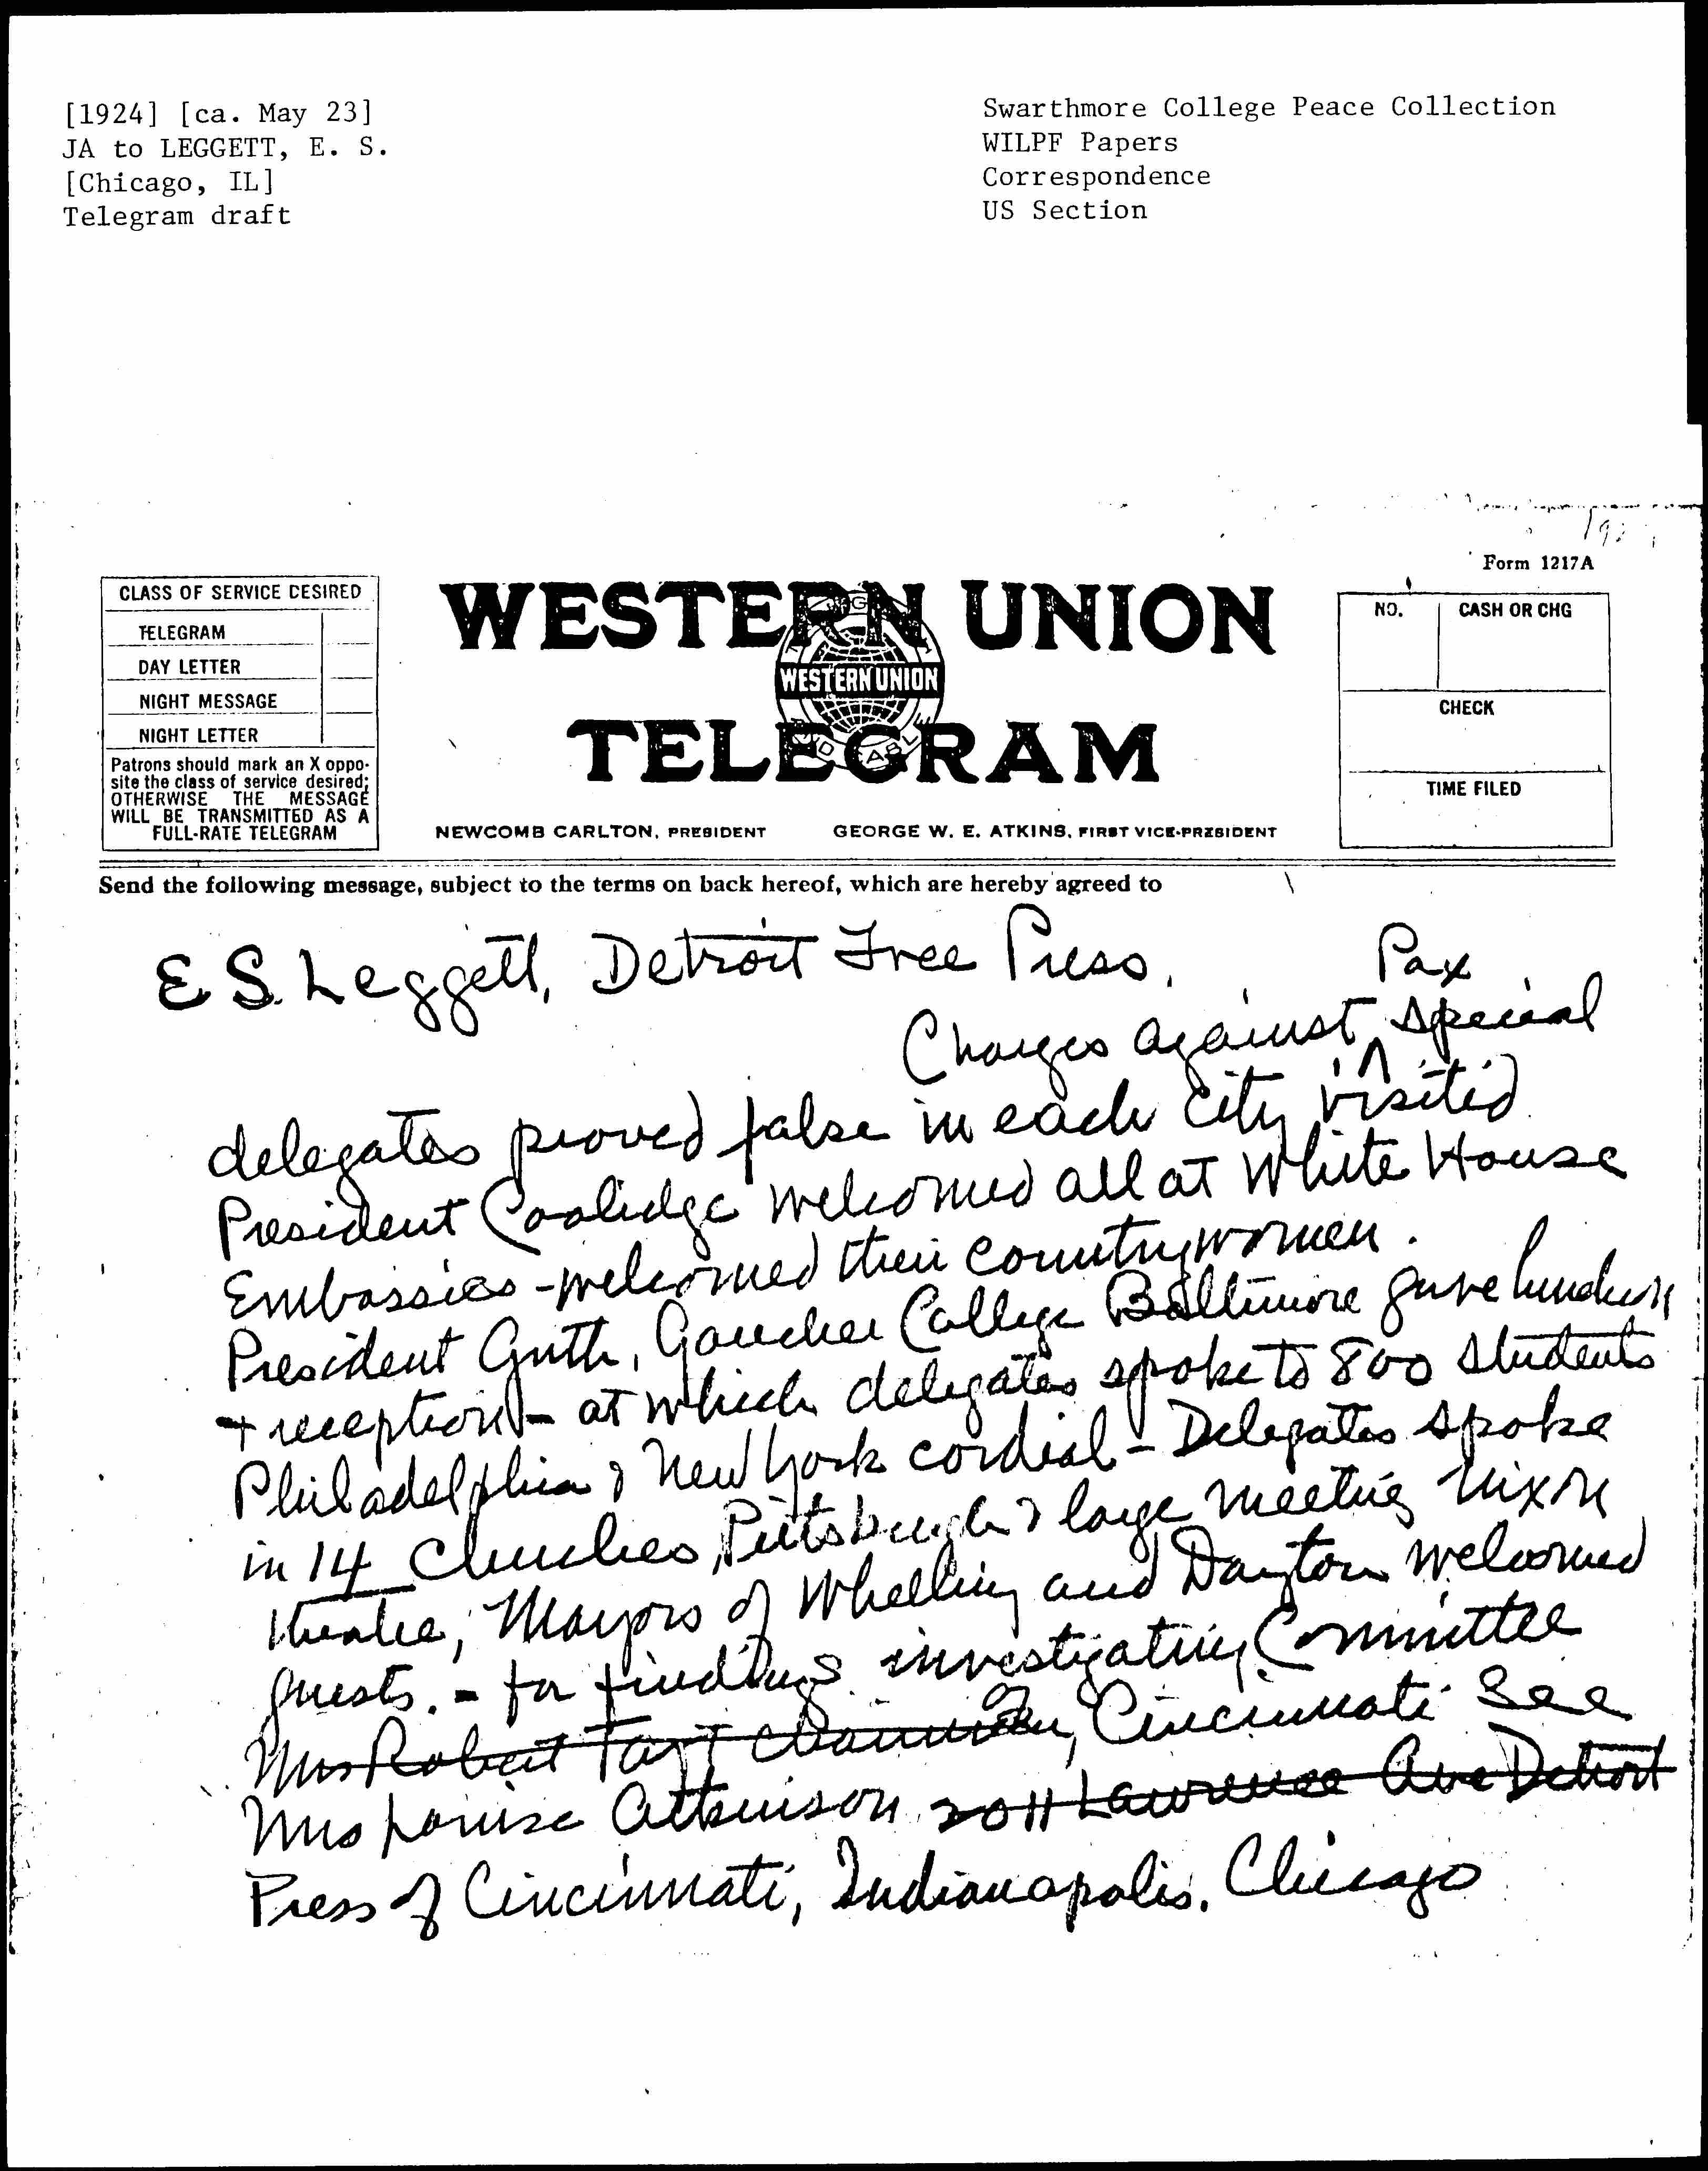 [1924] [ca. May 23]
JA to LEGGETT, E. S.
[Chicago, IL]
Telegram draft
Swarthmore College Peace Collection
WILPF Papers
Correspondence
US Section
Form 1217A
CLASS OF SERVICE DESIRED
TELEGRAM
DAY LETTER
NIGHT MESSAGE
NIGHT LETTER
Patrons should mark an X oppo-
site the class of service desired;
OTHERWISE THE MESSAGE
WILL BE TRANSMITTED AS A
FULL-RATE TELEGRAM
WESTERN UNION
WESTERN UNION
TELEGRAM
NEWCOMB CARLTON, PRESIDENT
GEORGE W. E. ATKINS, FIRST VICE-PRESIDENT
NO.
CASH OR CHG
CHECK
TIME FILED
Send the following message, subject to the terms on back hereof, which are hereby agreed to
E S. Leggett, Detroit Free Press.
Pax
Charges against special
delegates proved false in each city visited
President Coolidge welcomed all at White House
Embassies - welcomed their countrywomen.
President Guth, Goucher College Baltimore gave luncheon
+ reception - at which delegates spoke to 800 students
Philadelphia & New York cordial - Delegates spoke
in 14 Churches, Pittsburgh & large meeting Nixon
theatre, Mayors of Wheeling and Dayton welcomed
guests. - for findings investigating Committee
Mrs Robert Taft chairman, Cincinnati See
Mrs Louise Atkinson 2011 Lawrence Ave Detroit
Press of Cincinnati, Indianapolis. Chicago